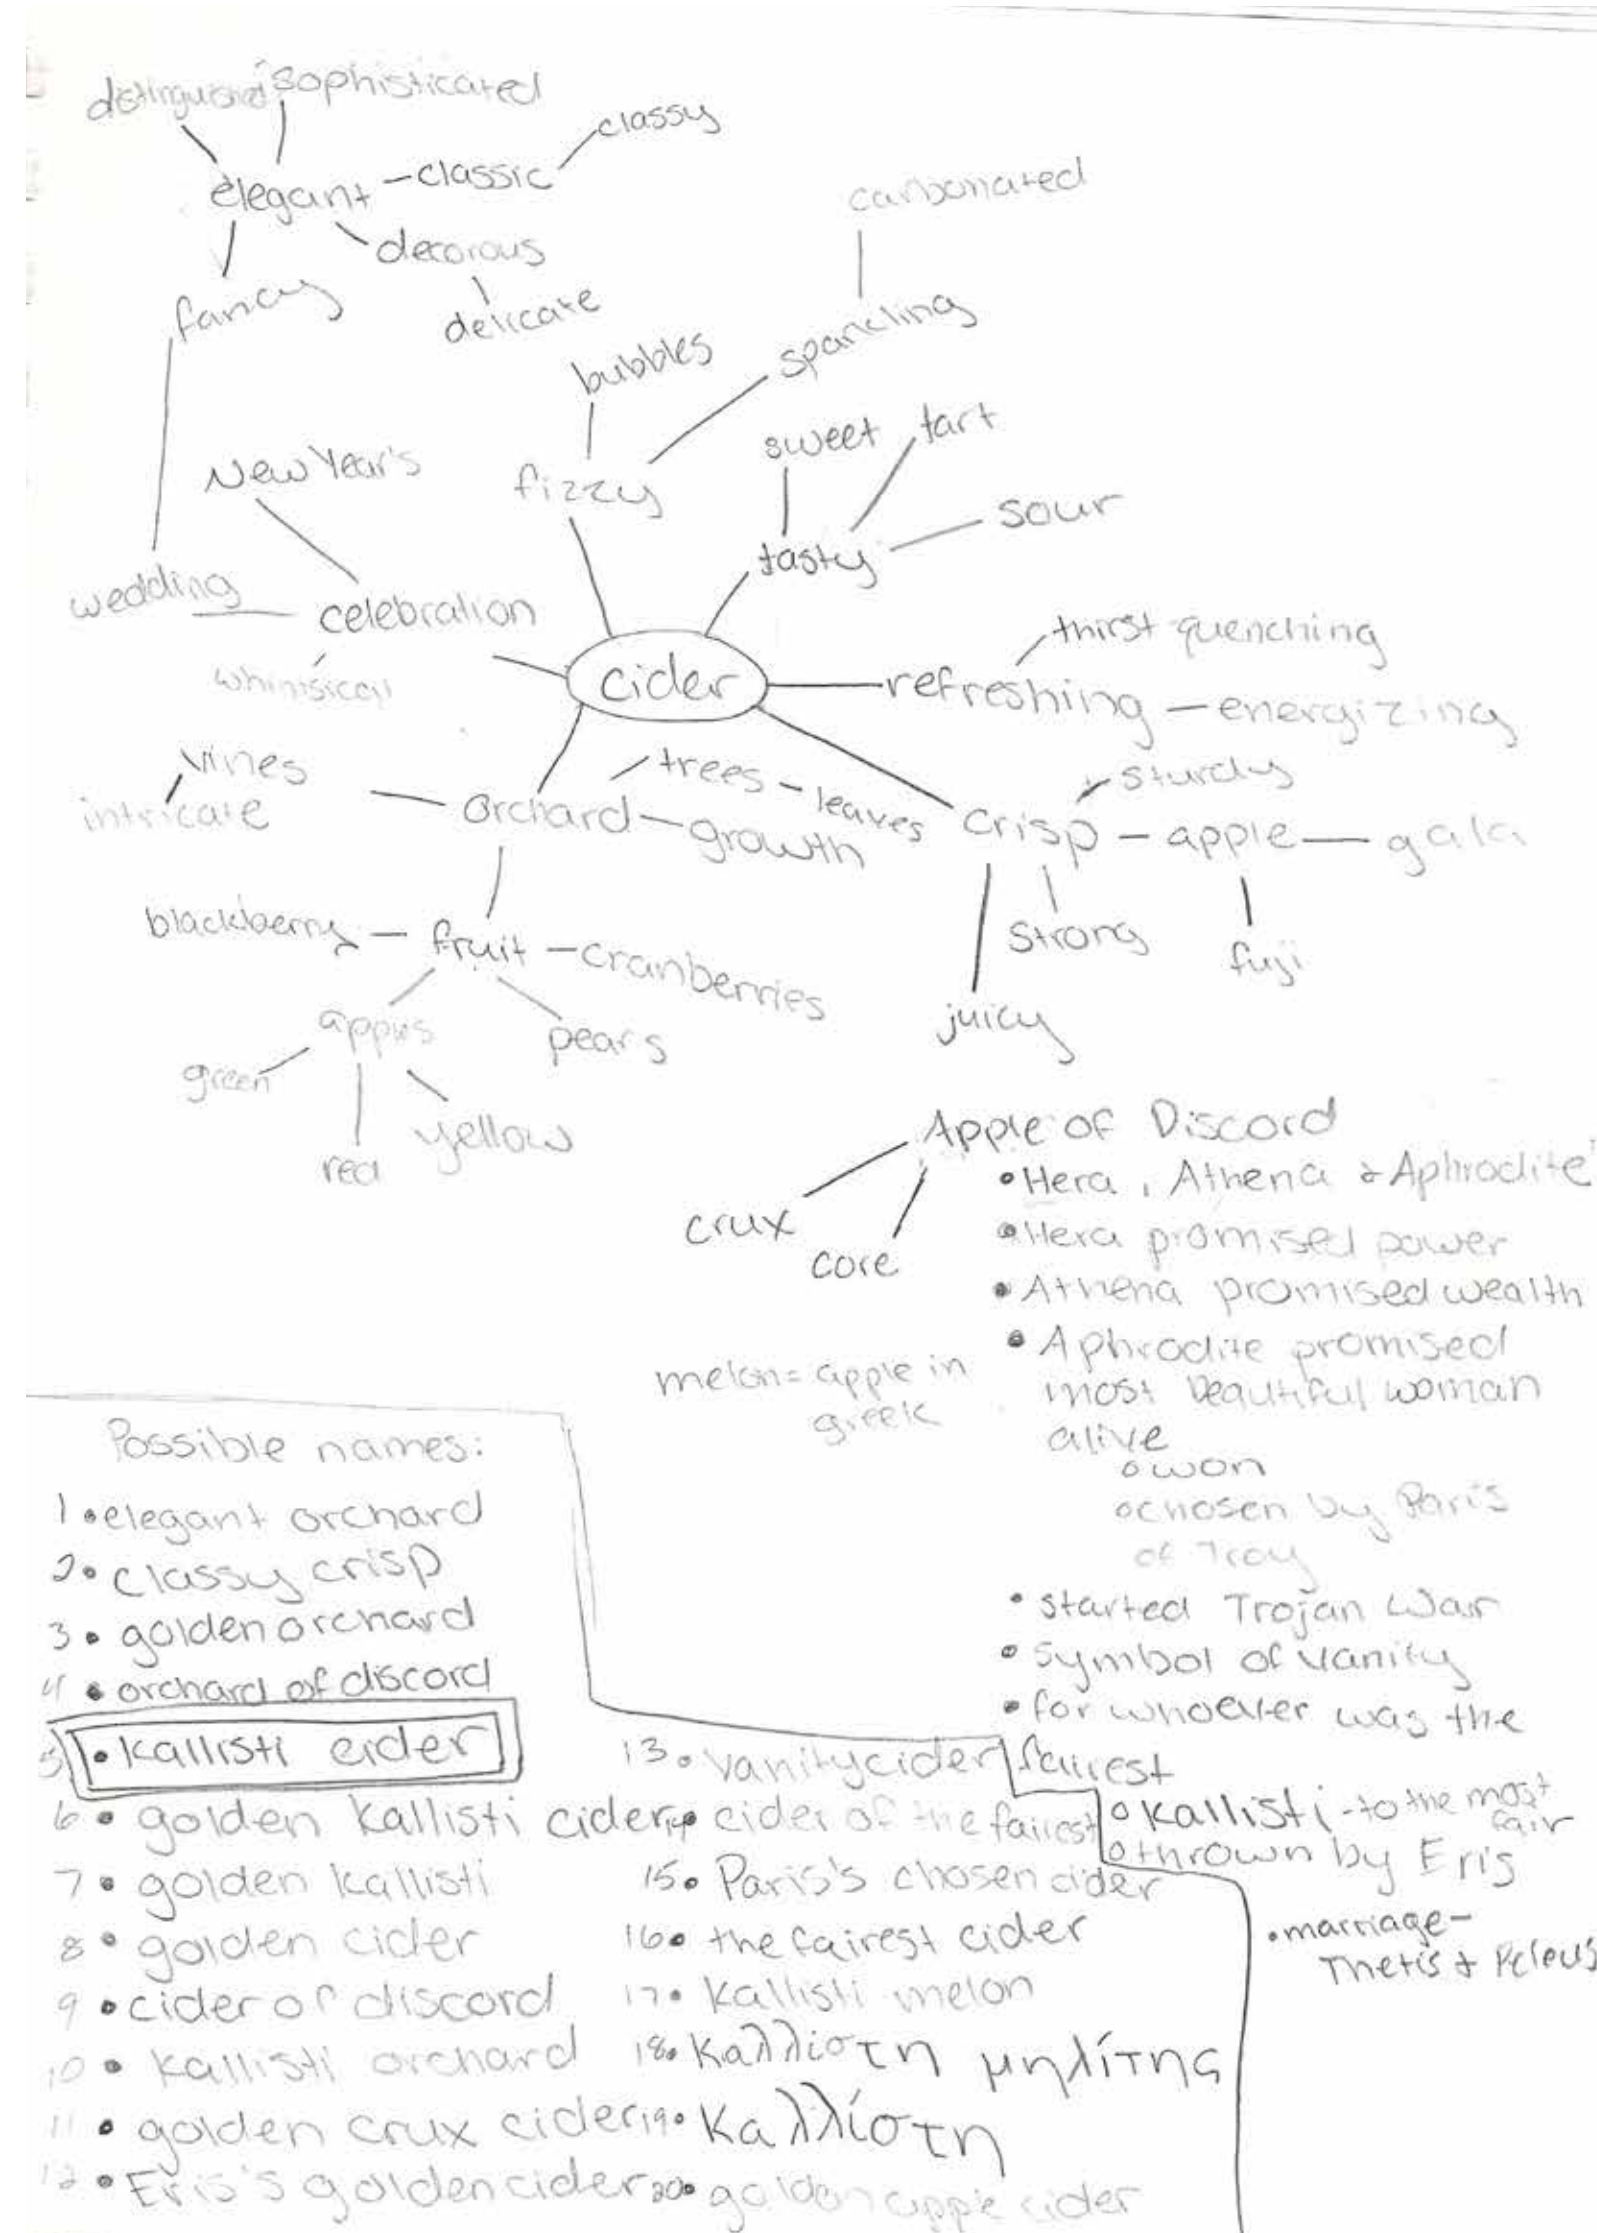 distinguished sophisticated
classy
elegant - classic
carbonated
decorous
fancy
delicate
sparkling
bubbles
sweet tart
New Year's
fizzy
sour
tasty
wedding
celebration
thirst quenching
whimsical
cider
refreshing - energizing
vines
trees - leaves
sturdy
intricate
orchard - growth
crisp - apple - gala
blackberry - fruit - cranberries
strong
fuji
apples
pears
juicy
green
yellow
red
Apple of Discord
• Hera, Athena & Aphrodite
crux
• Hera promised power
core
• Athena promised wealth
• Aphrodite promised
most beautiful woman
alive
melon = apple in
greek
o won
o chosen by Paris
of Troy
• started Trojan War
• symbol of vanity
• for whoever was the
fairest
o Kallisti - to the most
fair
o thrown by Eris
• marriage -
Thetis & Peleus
Possible names:
1 • elegant orchard
2 • classy crisp
3 • golden orchard
4 • orchard of discord
5 • kallisti cider
6 • golden kallisti cider
7 • golden kallisti
8 • golden cider
9 • cider of discord
10 • kallisti orchard
11 • golden crux cider
12 • Eris's golden cider
13 • vanity cider
14 • cider of the fairest
15 • Paris's chosen cider
16 • the fairest cider
17 • kallisti melon
18 • Καλλιστη μηλίτης
19 • Καλλίστη
20 • golden apple cider